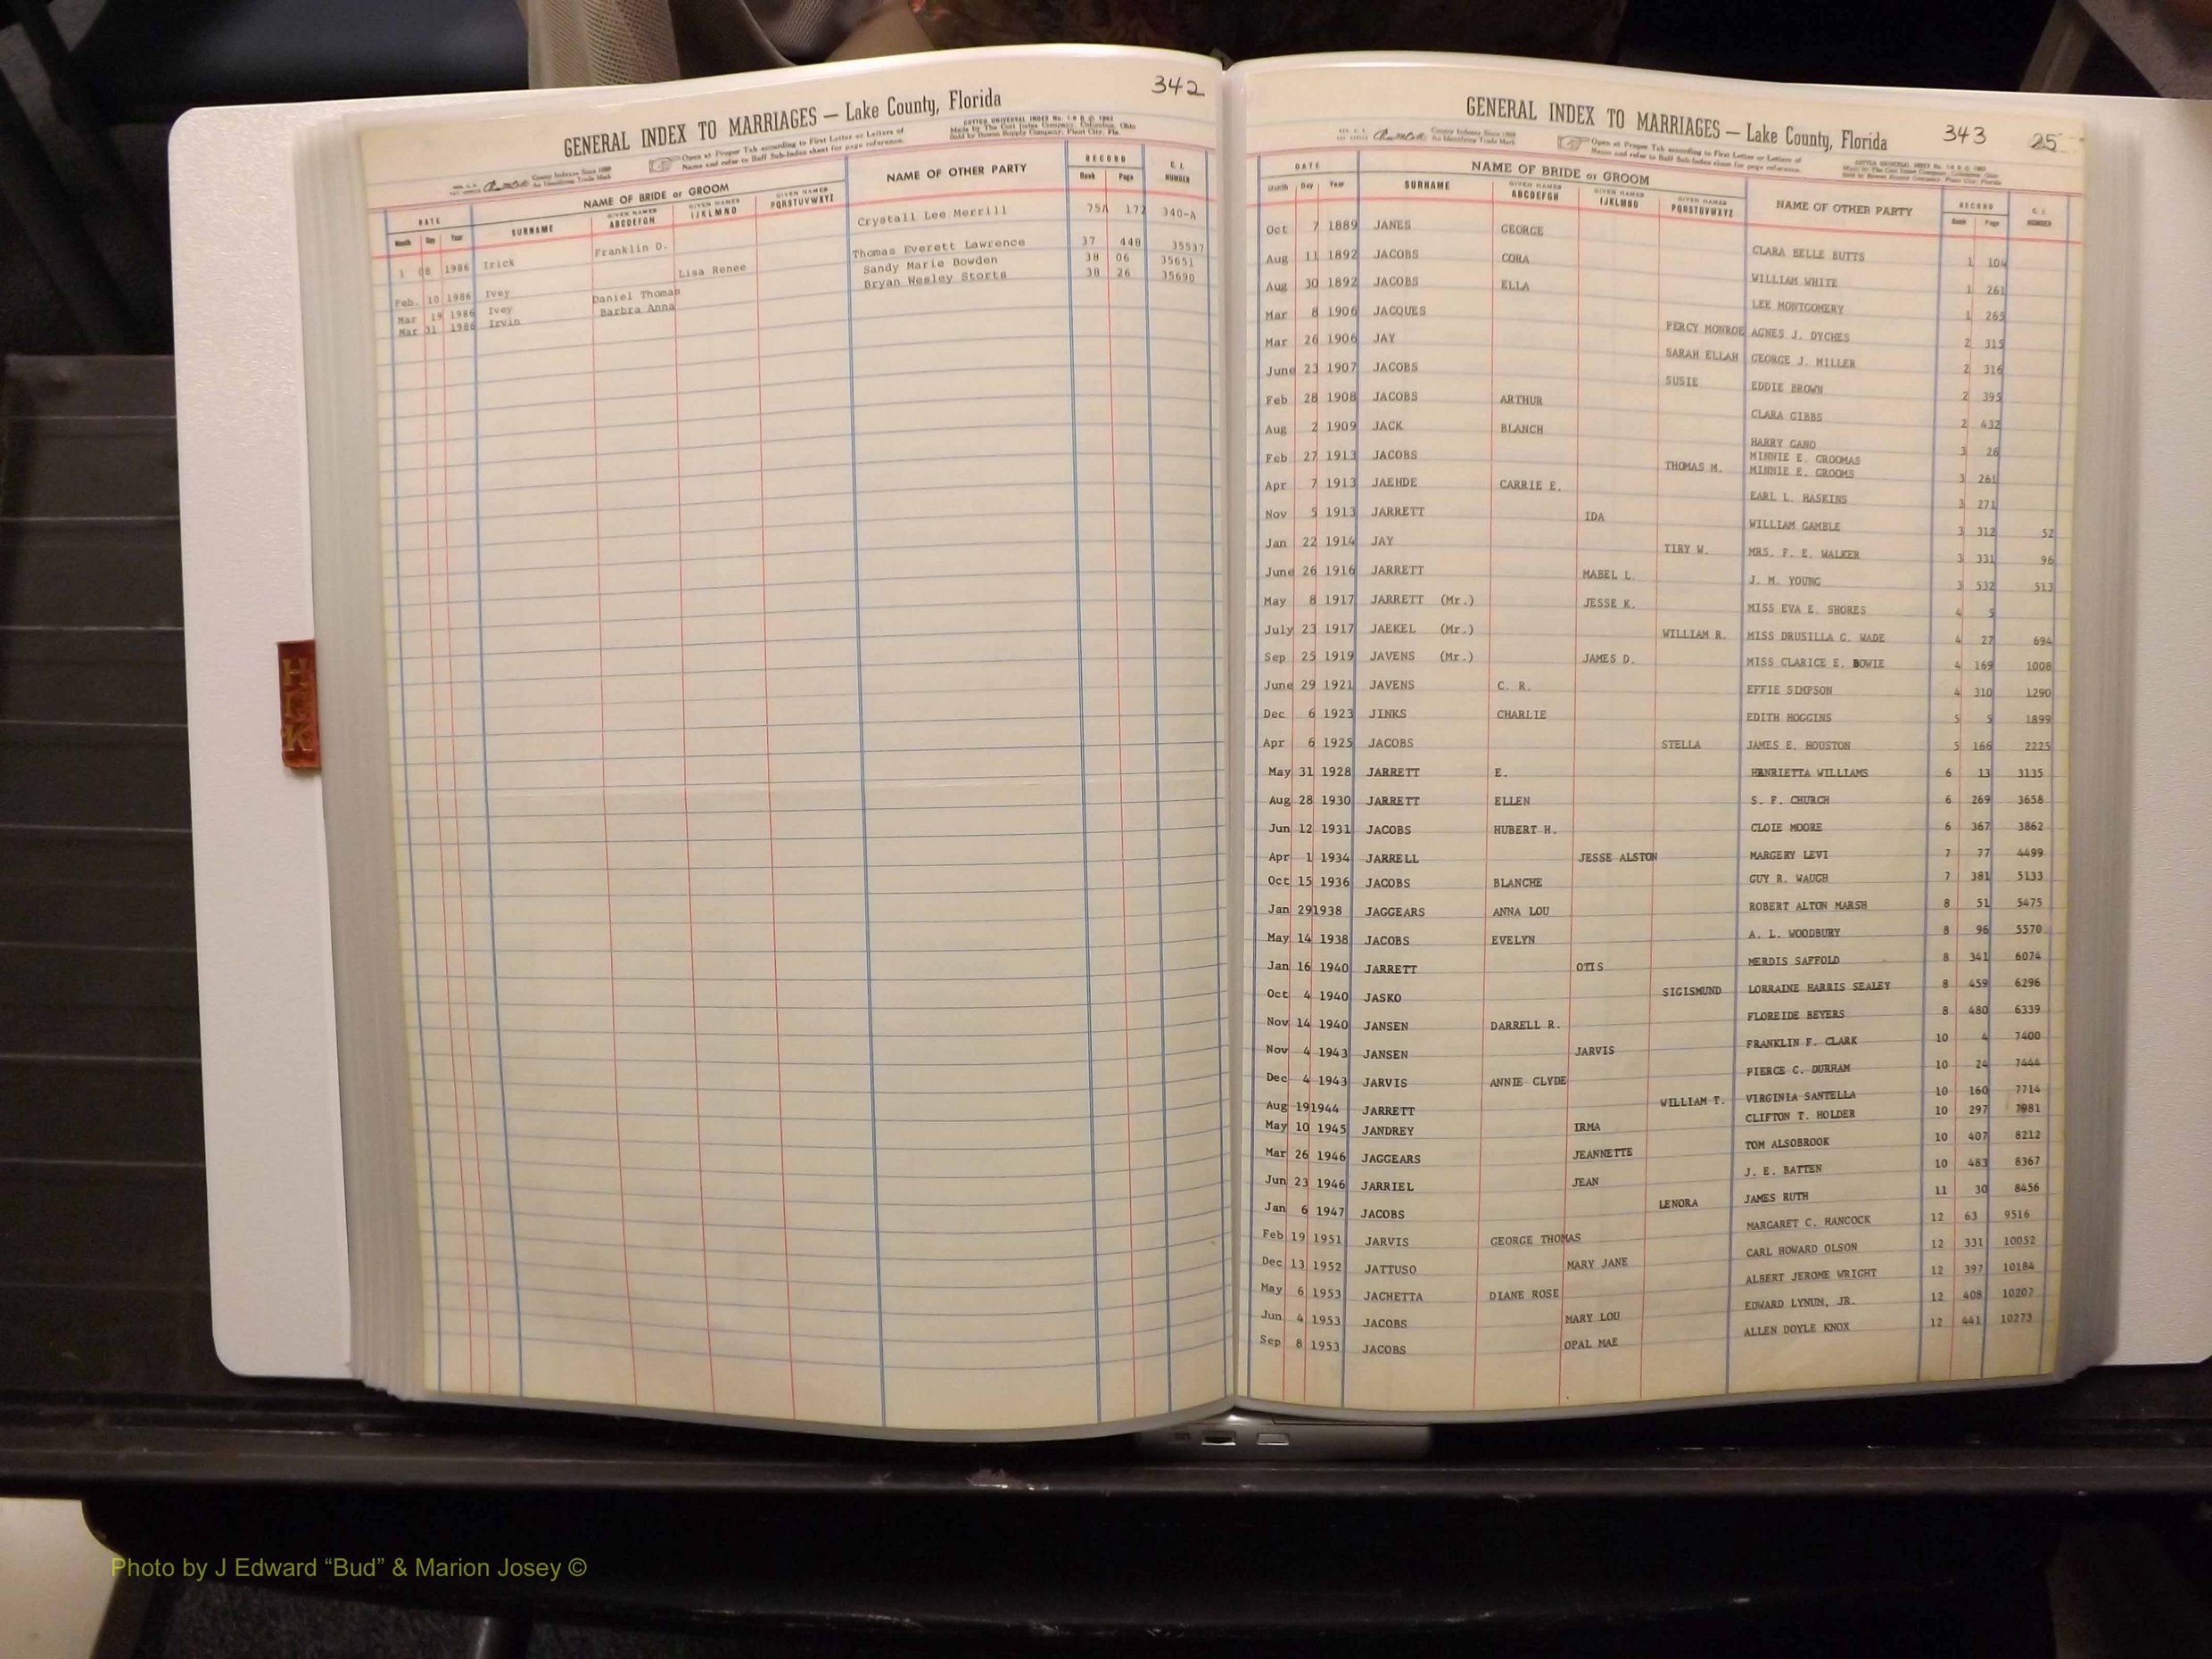 342
GENERAL INDEX TO MARRIAGES — Lake County, Florida
Open at Proper Tab according to First Letter or Letters of
Name and refer to Buff Sub-Index sheet for page reference.
COTT'S UNIVERSAL INDEX
Made by The Cott Index Company, Columbus, Ohio
Sold by Rowen Supply Company, Plant City, Fla.
County Indexes Since 1888
An Identifying Trade Mark
DATE NAME OF BRIDE or GROOM NAME OF OTHER PARTY RECORD NUMBER
Month Day Year SURNAME GIVEN NAMES ABCDEFGH GIVEN NAMES IJKLMNO GIVEN NAMES PQRSTUVWXYZ Book Page
1 08 1986 Irick Franklin D. Crystall Lee Merrill 75A 172 340-A
Feb. 10 1986 Ivey Lisa Renee Thomas Everett Lawrence 37 448 35537
Mar 19 1986 Ivey Daniel Thomas Sandy Marie Bowden 38 06 35651
Mar 31 1986 Irvin Barbra Anna Bryan Wesley Storts 38 26 35690
H I K
GENERAL INDEX TO MARRIAGES — Lake County, Florida 343 25
County Indexes Since 1888
An Identifying Trade Mark
Open at Proper Tab according to First Letter or Letters of
Name and refer to Buff Sub-Index sheet for page reference.
DATE NAME OF BRIDE or GROOM NAME OF OTHER PARTY RECORD NUMBER
Month Day Year SURNAME GIVEN NAMES ABCDEFGH GIVEN NAMES IJKLMNO GIVEN NAMES PQRSTUVWXYZ Book Page
Oct 7 1889 JANES GEORGE CLARA BELLE BUTTS 1 104
Aug 11 1892 JACOBS CORA WILLIAM WHITE 1 261
Aug 30 1892 JACOBS ELLA LEE MONTGOMERY 1 265
Mar 8 1906 JACQUES PERCY MONROE AGNES J. DYCHES 2 315
Mar 26 1906 JAY SARAH ELLAH GEORGE J. MILLER 2 316
June 23 1907 JACOBS SUSIE EDDIE BROWN 2 395
Feb 28 1908 JACOBS ARTHUR CLARA GIBBS 2 432
Aug 2 1909 JACK BLANCH HARRY GANO 3 26
Feb 27 1913 JACOBS THOMAS M. MINNIE E. GROOMAS
MINNIE E. GROOMS 3 261
Apr 7 1913 JAEHDE CARRIE E. EARL L. HASKINS 3 271
Nov 5 1913 JARRETT IDA WILLIAM GAMBLE 3 312 52
Jan 22 1914 JAY TIRY W. MRS. F. E. WALKER 3 331 96
June 26 1916 JARRETT MABEL L. J. M. YOUNG 3 532 513
May 8 1917 JARRETT (Mr.) JESSE K. MISS EVA E. SHORES 4 5
July 23 1917 JAEKEL (Mr.) WILLIAM R. MISS DRUSILLA C. WADE 4 27 694
Sep 25 1919 JAVENS (Mr.) JAMES D. MISS CLARICE E. BOWIE 4 169 1008
June 29 1921 JAVENS C. R. EFFIE SIMPSON 4 310 1290
Dec 6 1923 JINKS CHARLIE EDITH HOGGINS 5 5 1899
Apr 6 1925 JACOBS STELLA JAMES E. HOUSTON 5 166 2225
May 31 1928 JARRETT E. HENRIETTA WILLIAMS 6 13 3135
Aug 28 1930 JARRETT ELLEN S. F. CHURCH 6 269 3658
Jun 12 1931 JACOBS HUBERT H. CLOIE MOORE 6 367 3862
Apr 1 1934 JARRELL JESSE ALSTON MARGERY LEVI 7 77 4499
Oct 15 1936 JACOBS BLANCHE GUY R. WAUGH 7 381 5133
Jan 29 1938 JAGGEARS ANNA LOU ROBERT ALTON MARSH 8 51 5475
May 14 1938 JACOBS EVELYN A. L. WOODBURY 8 96 5570
Jan 16 1940 JARRETT OTIS MERDIS SAFFOLD 8 341 6074
Oct 4 1940 JASKO SIGISMUND LORRAINE HARRIS SEALEY 8 459 6296
Nov 14 1940 JANSEN DARRELL R. FLOREIDE BEYERS 8 480 6339
Nov 4 1943 JANSEN JARVIS FRANKLIN F. CLARK 10 4 7400
Dec 4 1943 JARVIS ANNIE CLYDE PIERCE C. DURHAM 10 24 7444
Aug 19 1944 JARRETT WILLIAM T. VIRGINIA SANTELLA 10 160 7714
May 10 1945 JANDREY IRMA CLIFTON T. HOLDER 10 297 7981
Mar 26 1946 JAGGEARS JEANNETTE TOM ALSOBROOK 10 407 8212
Jun 23 1946 JARRIEL JEAN J. E. BATTEN 10 483 8367
Jan 6 1947 JACOBS LENORA JAMES RUTH 11 30 8456
Feb 19 1951 JARVIS GEORGE THOMAS MARGARET C. HANCOCK 12 63 9516
Dec 13 1952 JATTUSO MARY JANE CARL HOWARD OLSON 12 331 10052
May 6 1953 JACHETTA DIANE ROSE ALBERT JEROME WRIGHT 12 397 10184
Jun 4 1953 JACOBS MARY LOU EDWARD LYNUN, JR. 12 408 10207
Sep 8 1953 JACOBS OPAL MAE ALLEN DOYLE KNOX 12 441 10273
Photo by J Edward “Bud” & Marion Josey ©